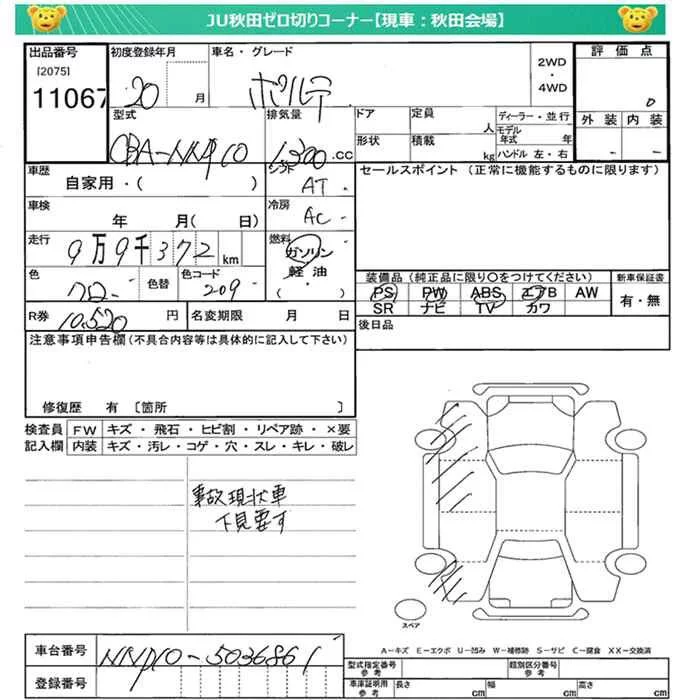 JU秋田ゼロ切りコーナー【現車：秋田会場】
出品番号
[2075]
11067
初度登録年月
20 月
車名・グレード
ポルテ
2WD
・
4WD
評価点
0
外装 内装
- -
型式
CBA-NNP10
排気量
1300.cc
ドア
定員
人
ディーラー・並行
モデル
年式 年
形状
積載
kg
ハンドル 左・右
車歴
自家用・( )
シフト
AT.
セールスポイント (正常に機能するものに限ります)
車検
年 月( 日)
冷房
AC -
走行
9万9千372 km
燃料
ガソリン
軽油
・( )
色
クロ-
色替
色コード
209-
装備品 (純正品に限り○をつけてください)
PS PW ABS エアB AW
SR ナビ TV カワ
新車保証書
有・無
R券
10,520 円
名変期限 月 日
後日品
注意事項申告欄 (不具合内容等は具体的に記入して下さい)
修復歴 有 〔箇所 〕
検査員
記入欄
FW キズ・飛石・ヒビ割・リペア跡・×要
内装 キズ・汚レ・コゲ・穴・スレ・キレ・破レ
事故現状車
下見要す
スペア
A－キズ E－エクボ U－凹み W－補修跡 S－サビ C－腐食 XX－交換済
車台番号
NNP10-5036861
登録番号
型式指定番号
参考
類別区分番号
参考
車庫証明用
参考
長さ cm
幅 cm
高さ cm